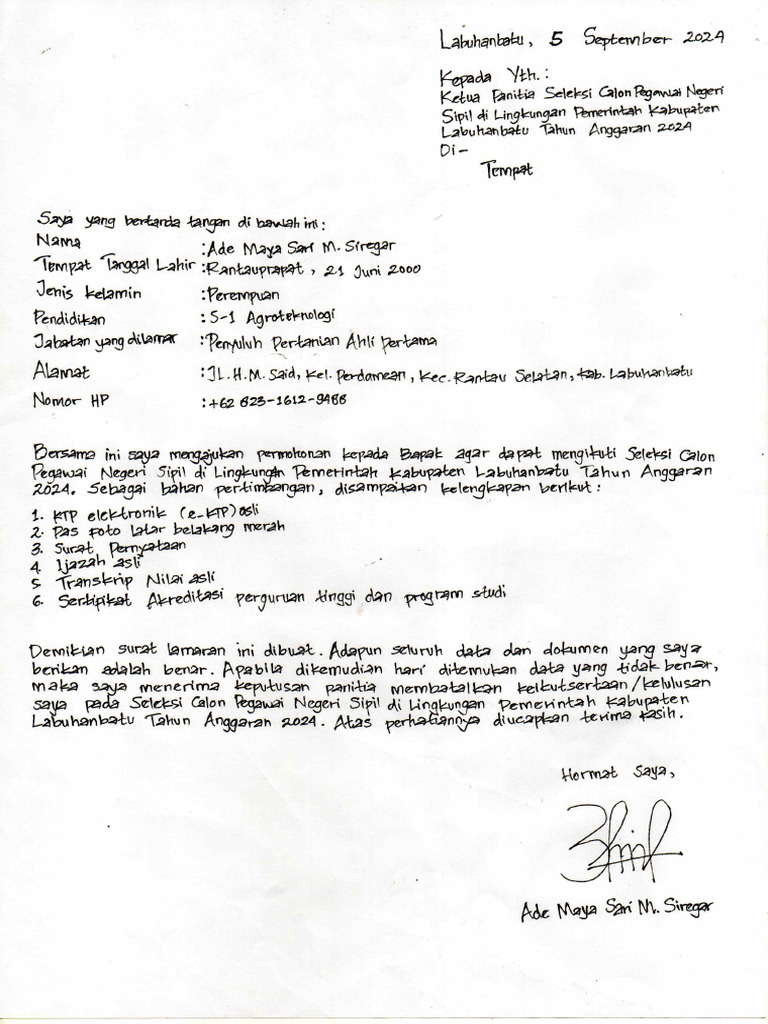 Labuhanbatu, 5 September 2024
Kepada Yth.:
Ketua Panitia Seleksi Calon Pegawai Negeri
Sipil di Lingkungan Pemerintah Kabupaten
Labuhanbatu Tahun Anggaran 2024
Di-
Tempat
Saya yang bertanda tangan di bawah ini:
Nama : Ade Maya Sari M. Siregar
Tempat Tanggal Lahir : Rantauprapat, 21 Juni 2000
Jenis Kelamin : Perempuan
Pendidikan : S-1 Agroteknologi
Jabatan yang dilamar : Penyuluh Pertanian Ahli Pertama
Alamat : JL. H.M. Said, Kel. Perdamean, Kec. Rantau Selatan, Kab. Labuhanbatu
Nomor HP : +62 823-1612-9488
Bersama ini saya mengajukan permohonan kepada Bapak agar dapat mengikuti Seleksi Calon
Pegawai Negeri Sipil di Lingkungan Pemerintah Kabupaten Labuhanbatu Tahun Anggaran
2024. Sebagai bahan pertimbangan, disampaikan kelengkapan berikut:
1. KTP elektronik (e-KTP) asli
2. Pas Foto latar belakang merah
3. Surat Pernyataan
4. Ijazah asli
5 Transkrip Nilai asli
6. Sertipikat Akreditasi perguruan tinggi dan program studi
Demikian surat lamaran ini dibuat. Adapun seluruh data dan dokumen yang saya
berikan adalah benar. Apabila dikemudian hari ditemukan data yang tidak benar,
maka saya menerima keputusan panitia membatalkan keikutsertaan/kelulusan
saya pada Seleksi Calon Pegawai Negeri Sipil di Lingkungan Pemerintah Kabupaten
Labuhanbatu Tahun Anggaran 2024. Atas perhatiannya diucapkan terima kasih.
Hormat Saya,
Ade Maya Sari M. Siregar